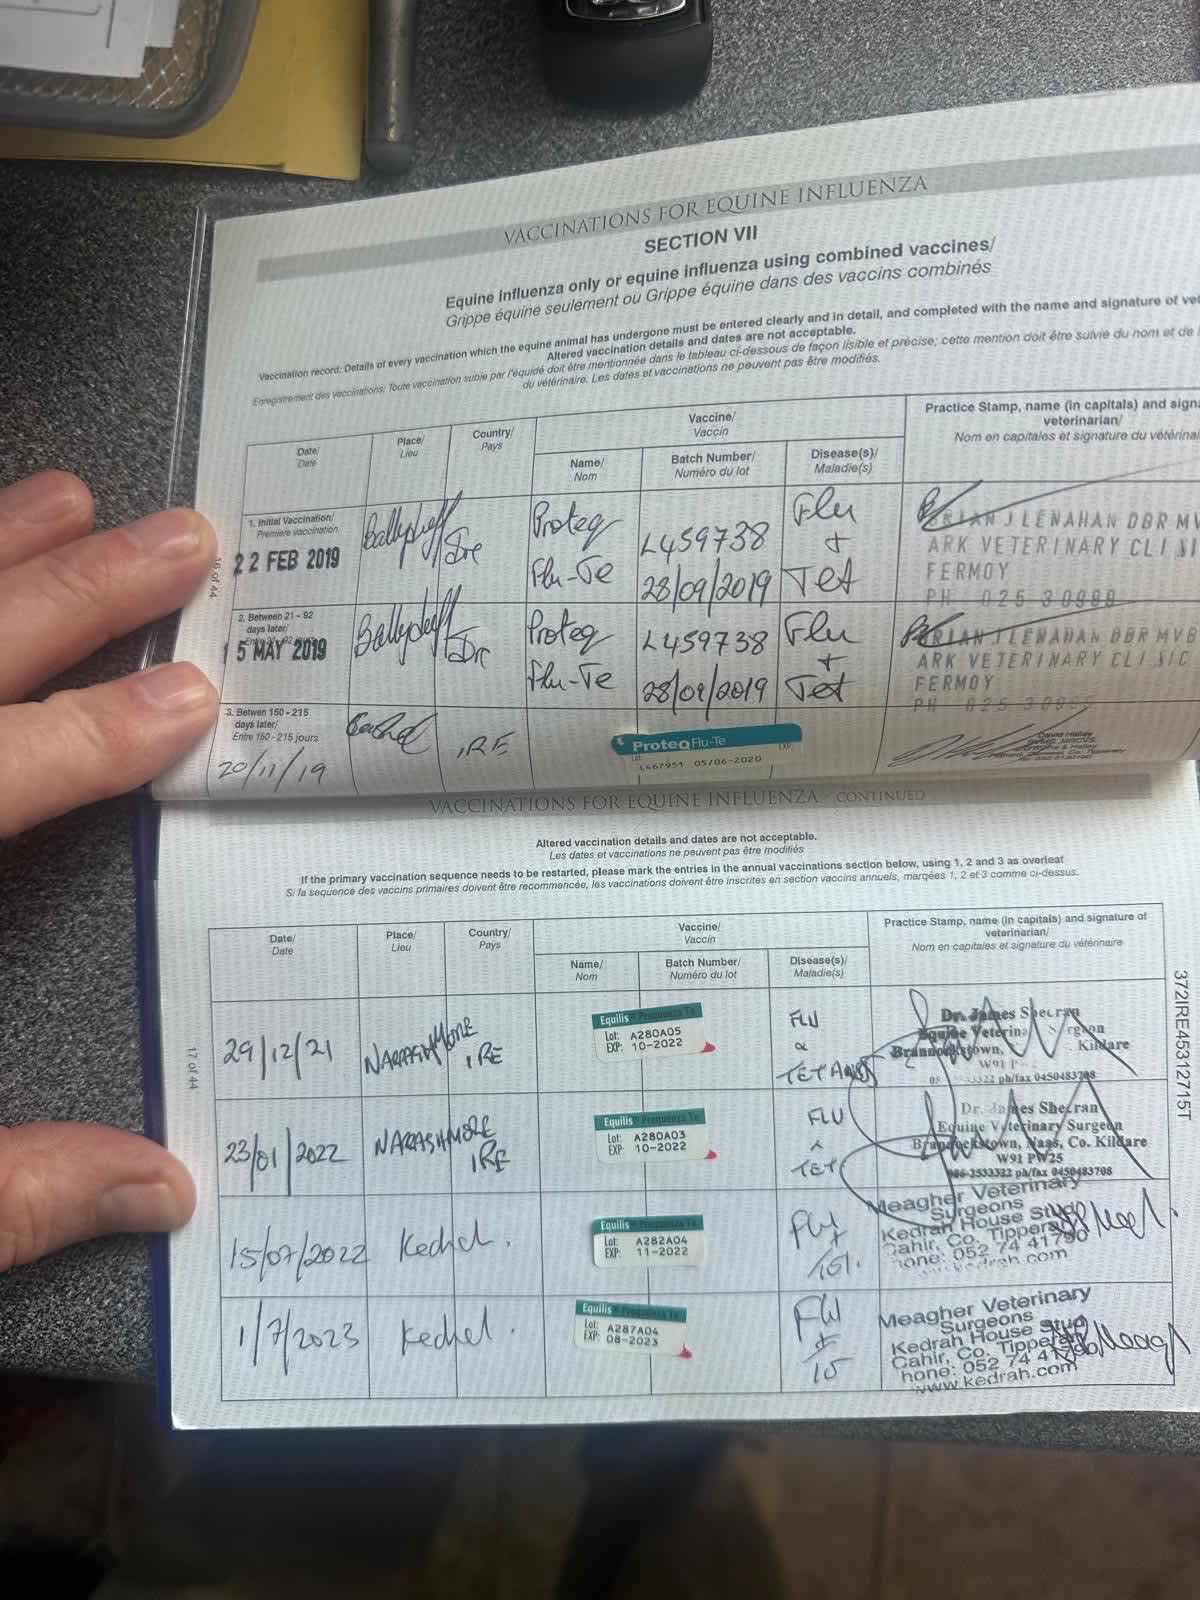 VACCINATIONS FOR EQUINE INFLUENZA
SECTION VII
Equine influenza only or equine influenza using combined vaccines/
Grippe équine seulement ou Grippe équine dans des vaccins combinés
Vaccination record: Details of every vaccination which the equine animal has undergone must be entered clearly and in detail, and completed with the name and signature of
Altered vaccination details and dates are not acceptable.
Enregistrement des vaccinations: Toute vaccination subie par l'équidé doit être mentionnée dans le tableau ci-dessous de façon lisible et précise; cette mention doit être suivie du nom et de
du vétérinaire. Les dates et vaccinations ne peuvent pas être modifiés.
Date/
Date
Place/
Lieu
Country/
Pays
Vaccine/
Vaccin
Name/
Nom
Batch Number/
Numéro du lot
Disease(s)/
Maladie(s)
Practice Stamp, name (in capitals) and
veterinarian/
Nom en capitales et signature du
1. Initial Vaccination/
Première vaccination
22 FEB 2019
Ire
Proteq
Flu-Te
L459738
28/09/2019
Flu
+
Tet
BRIAN J LENAHAN DBR
ARK VETERINARY
FERMOY
PH 025 30988
2. Between 21 - 92
days later/
15 MAY 2019
Ire
Proteq
Flu-Te
L459738
28/09/2019
Flu
+
Tet
BRIAN J LENAHAN DBR MVB
ARK VETERINARY CLINIC
FERMOY
PH 025
3. Betwen 150 - 215
days later/
Entre 150 - 215 jours
20/11/19
Cashel
IRE
ProteqFlu-Te
Lot
EXP
L467951 05/06-2020
16 of 44
VACCINATIONS FOR EQUINE INFLUENZA - CONTINUED
Altered vaccination details and dates are not acceptable.
Les dates et vaccinations ne peuvent pas être modifiés
If the primary vaccination sequence needs to be restarted, please mark the entries in the annual vaccinations section below, using 1, 2 and 3 as overleaf
Si la sequence des vaccins primaires doivent être recommencée, les vaccinations doivent être inscrites en section vaccins annuels, marqées 1, 2 et 3 comme ci-dessus.
Date/
Date
Place/
Lieu
Country/
Pays
Vaccine/
Vaccin
Name/
Nom
Batch Number/
Numéro du lot
Disease(s)/
Maladie(s)
Practice Stamp, name (in capitals) and signature of
veterinarian/
Nom en capitales et signature du vétérinaire
29/12/21
IRE
Equilis Prequenza Te
Lot: A280A05
EXP: 10-2022
FLU
&
TETANUS
Dr. James Sheeran
Equine Veterinary Surgeon
Kildare
ph/fax 0450483708
23/01/2022
IRE
Equilis Prequenza Te
Lot: A280A03
EXP: 10-2022
FLU
&
TET
Dr. James Sheeran
Equine Veterinary Surgeon
Brannockstown, Naas, Co. Kildare
W91 PW25
086-2533322 ph/fax 0450483708
15/07/2022
Kedrah.
Equilis Prequenza Te
Lot: A282A04
EXP: 11-2022
Flu
+
Meagher Veterinary
Surgeons
Kedrah House Stud
Cahir, Co. Tipperary
hone: 052 74 41790
1/7/2023
Kedrah.
Equilis Prequenza Te
Lot: A287A04
EXP: 08-2023
Flu
+
Meagher Veterinary
Surgeons
Kedrah House Stud
Cahir, Co. Tipperary
hone: 052 74 41790
www.kedrah.com
17 of 44
372IRE45312715T